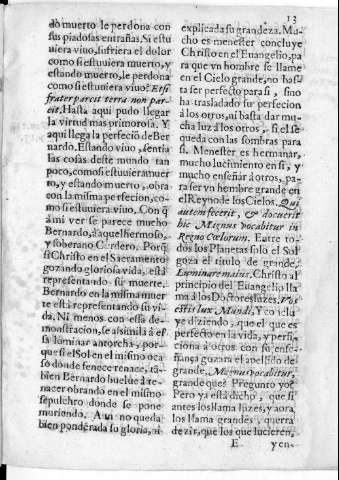 13
do muerto le perdona con
sus piadosas entrañas. Si estu
uiera viuo, sufriera el dolor
como si estuuiera muerto, y
estando muerto, le perdona
como si estuuiera viuo? Et si
frater parcis terra non par-
cit. Hasta aqui pudo llegar
la virtud mas primorosa. Y
aqui llega la perfeciõ de Ber
nardo. Estando viuo, sentia
las cosas deste mundo tan
poco, como si estuuiera muer
to, y estando muerto, obra
con la misma perfecion, co-
mo si estuuiera viuo. Con q̃
à mi ver se parece mucho
Bernardo, à aquel hermoso,
y soberano Cordero. Porq̃
si Christo en el Sacramento
gozando gloriosa vida, està
representando su muerte.
Bernardo en la misma muer
te està representando su vi-
da. Ni menos con esta de-
mostracion, se asimila à es
sa luminar antorcha, por-
que si el Sol en el mismo oca
so donde fenece renace, tã-
bien Bernardo buelue à re-
nacer obrando en el mismo
sepulchro donde se pone
muriendo. Aun no queda
bien ponderada su gloria, ni
explicada su grandeza. Mu-
cho es menester concluye
Christo en el Euangelio, pa
ra que vn hombre se llame
en el Cielo grande, no bas-
ta ser perfecto para si, sino
ha trasladado su perfecion
à los otros, ni basta dar mu-
cha luz à los otros, si el se
queda con las sombras para
si. Menester es hermanar,
mucho lucimiento en si, y
mucho enseñar à otros, pa-
ra ser vn hombre grande en
el Reyno de los Cielos. Qui
autem fecerit, & docuerit
hic Magnus vocabitur in
Regno Cœlorum. Entre to-
dos los Planetas solo el Sol
goza el titulo de grande,
Luminare maius. Christo al
principio del Euangelio lla
ma à los Dotores luzes. Vos
estis lux Mundi, Y co
ye diziendo, que el que es
perfecto en la vida, y perfi-
ciona à otros con su ense-
ñança gozara el apellido de
grande. Magnus vocabitur,
grande que? Pregunto yo?
Pero ya està dicho, que si
antes los llama luzes, y aora
los llama grandes, querra
dezir, que los que lucieren,
E yen-